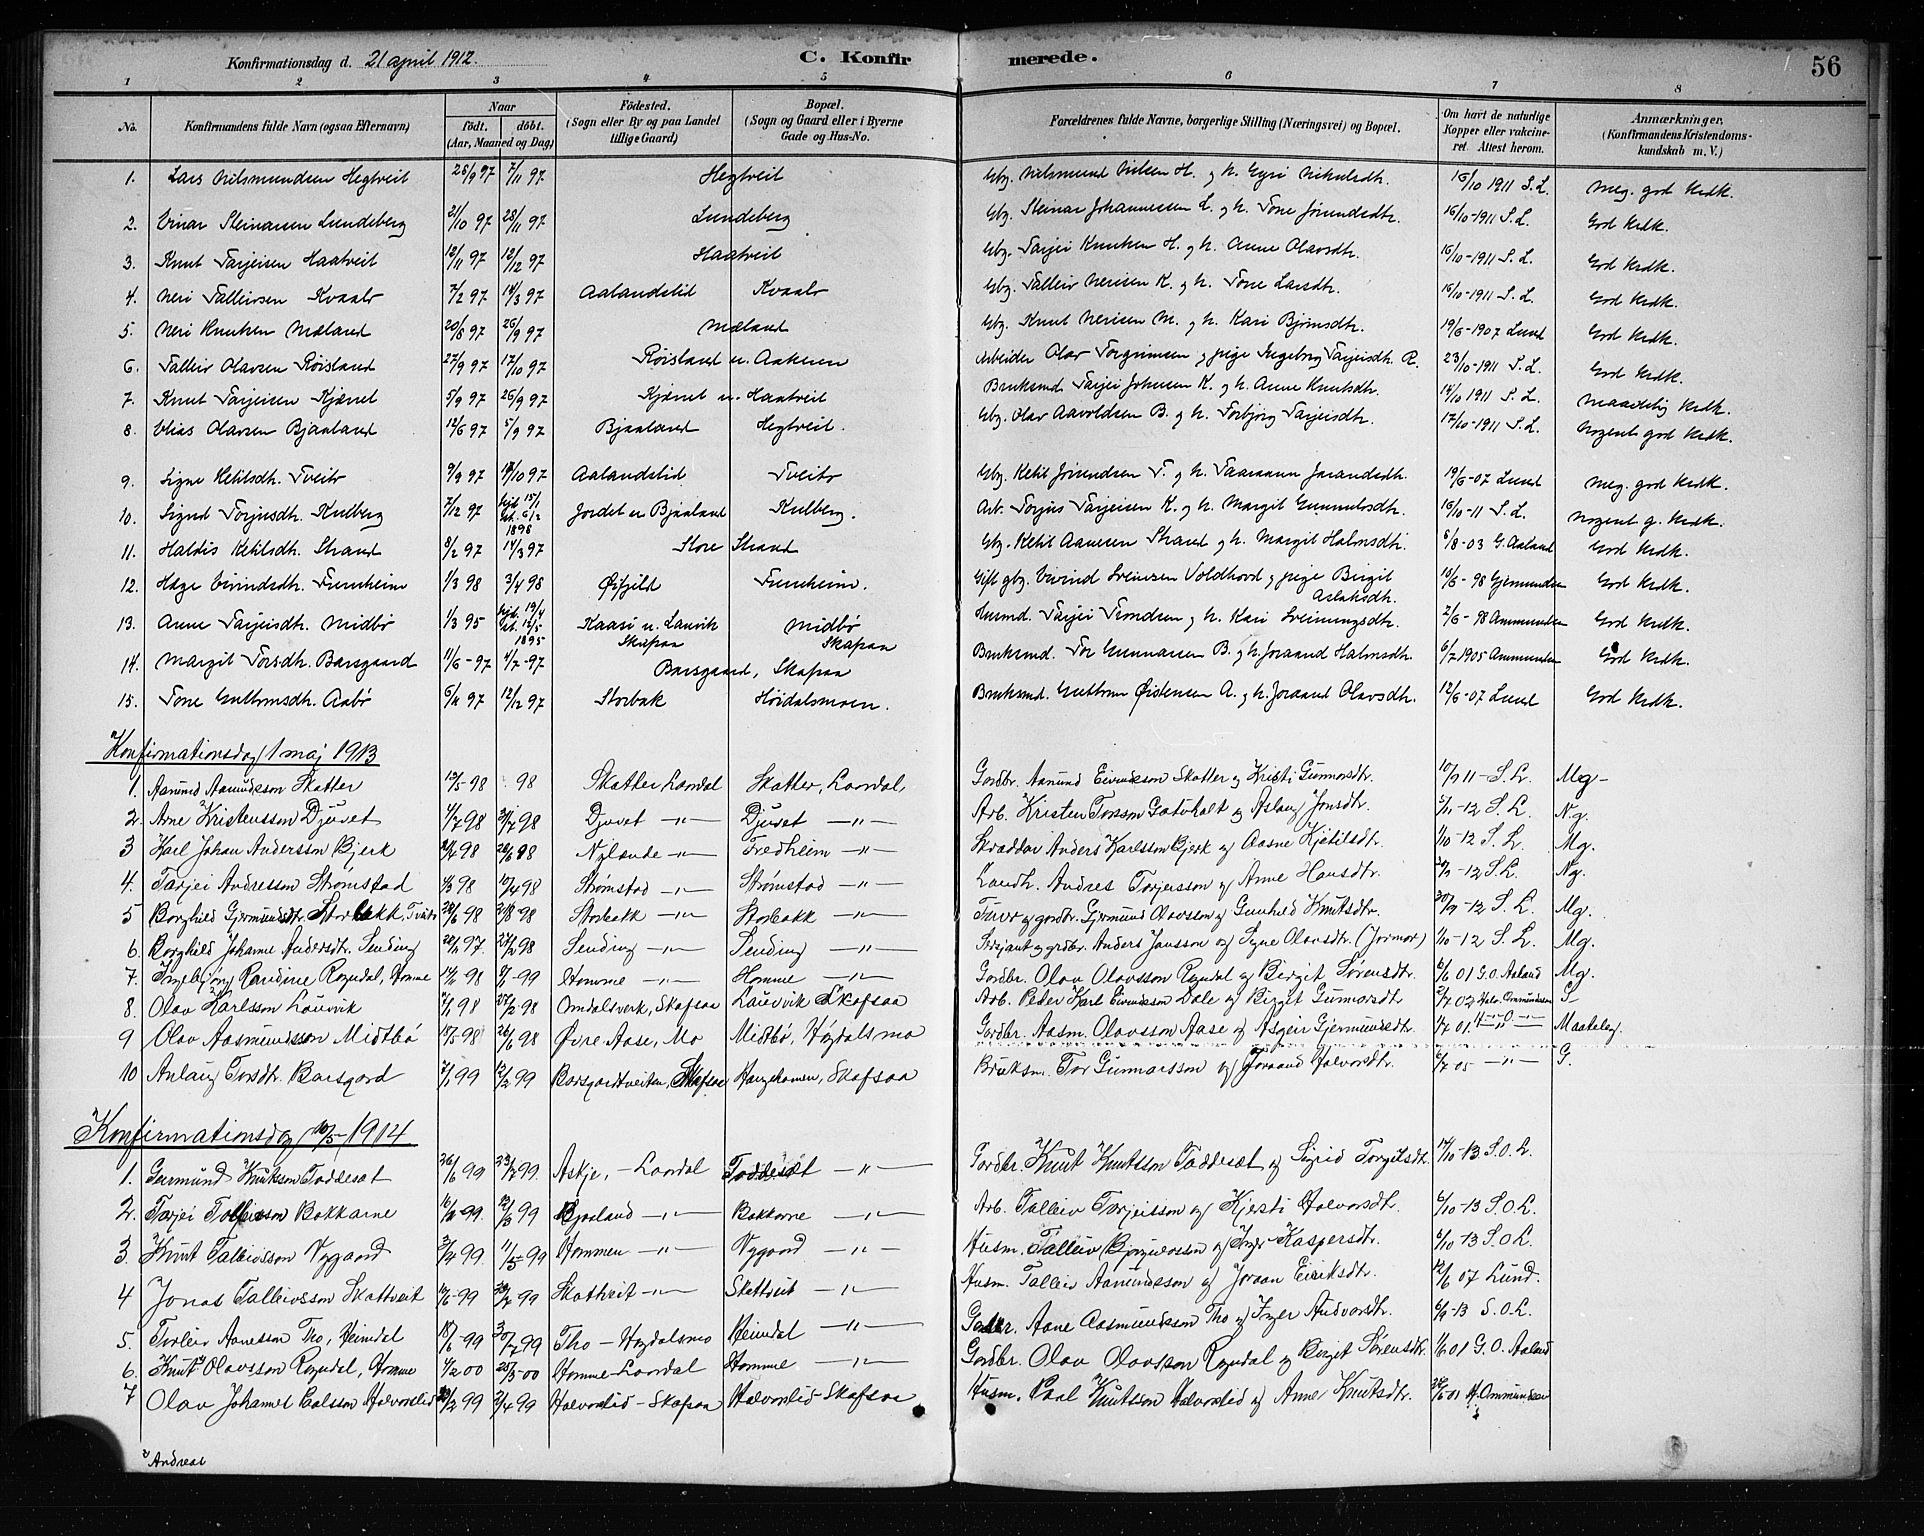 Konfirmationsdag d. 21 april 1912.
C. Konfirmerede.
56
1 2 3 4 5 6 7 8
No. Konfirmandens fulde Navn (ogsaa Efternavn) Naar født. døbt. (Aar, Maaned og Dag) Fødested. (Sogn eller By og paa Landet tillige Gaard) Bopæl. (Sogn og Gaard eller i Byerne Gade og Hus-No. Forældrenes fulde Navne, borgerlige Stilling (Næringsvei) og Bopæl. Om havt de naturlige Kopper eller vakcineret. Attest herom. Anmærkninger. (Konfirmandens Kristendomskundskab m. V.)
1. Lars Nilsmundsen Hegtveit 28/9 97 7/11 97 Hegtveit Gbg. Nilsmund Nilsen H. g h. Gyri Nikulsdh. 16/10 1911 S. L. Meg. god Krdk.
2. Einar Steinarsen Lundeberg 21/10 97 28/11 97 Lundeberg Gbg. Steinar Johannessen L. g h. Tone Jørundsdh. 16/10-1911 S. L. God Krdk.
3. Knut Tarjeisen Haatveit 13/11 97 12/12 97 Haatveit Gbg. Tarjei Knutsen H. g h. Anne Olavsdh. 16/10-1911 S. L. God Krdk.
4. Neri Talleivsen Kvaalo 7/2 97 14/3 97 Aalandslid Kvaalo Gbg. Talleiv Nerisen K. g h. Tone Larsdh. 16/10-1911 S. L. God Krdk.
5. Neri Knutsen Mæland 20/8 97 26/9 97 Mæland Gbg. Knut Nerisen M. g h. Kari Bjørnsdh. 19/6-1907 Lund God Krdk.
6. Talleiv Olavsen Røisland 27/9 97 17/10 97 Røisland u. Aakeren Arbeider Olav Torgrimsen g pige Ingeborg Tarjeisdh. R. 23/10-1911 S. L. God Krdk.
7. Knut Tarjeisen Kjænet 5/9 97 26/9 97 Kjænet u. Haatveit Bruksmd. Tarjei Johnsen K. g h. Anne Knutsdh. 14/10 1911 S. L. Maadelig Krdk.
8. Elias Olavsen Bjaaland 12/6 97 5/9 97 Bjaaland Hegtveit. Gbg. Olav Aavoldsen B. g h. Torbjørg Tarjeisdh. 17/10-1911 S. L. Nogent god Krdk.
9. Signe Ketilsdh. Tveito 9/9 97 10/10 97 Aalandslid Tveito Gbg. Ketil Jørundsen T. g h. Taaraann Jorandsdh. 19/6-07 Lund Meg. god Krdk.
10. Sigrid Torjusdh. Kulberg 7/12 97 hjd. 15/1 1898 Jordet u Bjaaland Kulberg. Arb. Torjus Tarjeisen K. g h. Margit Gunnulvsdh. 16/10-11 S. L. Nogent g. Krdk.
11. Haldis Ketilsdh. Strand 8/2 97 14/3 97 Store Strand Gbg. Ketil Aanesen Strand g h. Margit Halvsdh. 6/8-03 G. Aaland God Krdk.
12. Hæge Eivindsdh. Funnheim 1/3 98 3/4 98 Øifjeld Funnheim. Gift gbg. Eivind Sveinsen Voldhord g pige Birgit Aslaksdh. 18/6-98 Gjermundsen God Krdk.
13. Anne Tarjeisdh. Midbø 1/3 95 hjd. 19/4 1895 Kaasi u. Lauvik Skapsaa Midbø Skapsaa Husmd. Tarjei Trondsen g h. Kari Sveinungsdh. 2/6-98 Ammundsen God Krdk.
14. Margit Torsdh. Barsgaard 11/6-97 4/7-97 Barsgaard, Skapsaa Bruksmd. Tor Gunnarsen B. g h. Joraand Halvsdh. 6/7 1905 Ammundsen God Krdk.
15. Tone Guttormsdh. Aabø 6/11 97 12/12 97 Storbak Høidalsmoen. Bruksmd. Guttorm Øistensen A. g h. Joraand Olavsdh. 12/6-07 Lund God Krdk.
Konfirmationsdag 1 maj 1913
1. Aamund Aamundsson Skatter 13/5-98 98 Skatter Laardal Skatter, Laardal, Gardbr. Aamund Eivindsson Skatter og Kristi Gunnarsdtr. 10/9 11-S. L. Mg-
2. Arne Kristensson Djuvet 4/7 98 31/7 98 Djuvet -"- Djuvet -"- Arb. Kristen Torsson Gatuhalt og Aslaug Jonsdtr. -12 S. L. Ng.
3 Karl Johan Andersson Bjerk 98 26/6 98 Nylænde -"- Fredheim -"- Skræddar Anders Karlsson Bjerk og Aasne Kjetilsdtr. 1/10-12 S. L. Mg.
4. Tarjei Andresson Strømstad 98 10/4 98 Strømstad -"- Strømstad -"- Landh. Andres Torjersson og Anne Hansdtr. -12 S. L. Ng.
5 Borghild Gjermundsdtr. Storbakk, 98 98 Storbakk -"- Storbakk -"- gardbr. Gjermund Olavsson og Gunhild Knutsdtr. 30/9-12 S. L. Mg.
6. Borghild Johanne Andersdtr. Sending 97. 27/2 98 Sending -"- Sending -"- Serjant og grdbr. Anders Jansson og Signe Olavsdtr. (Jormor) 1/10-12 S. L. Mg.
7. Ingebjørg Randine Rogndal, Homme 98 -99 Homme -"- Homme -"- Gardbr. Olav Olavsson Rogndal og Birgit Sørensdtr. 6/6 01 G. O. Aaland Mg.
8. Olav Karlsson Lauvvik 98 27/2 98 Omdalsverk, Skafsaa Lauvvik Skafsaa Arb. Peder Karl Eivindsson Dale og Birgit Gunnarsdtr 2/7 02 Halv. Ommundsen G-
9 Olav Aasmundsson Midtbø 15/5-98 26/6 98 Øvre Aase, Mo Midtbø, Høydalsmo Gardbr. Aasm. Olavsson Aase og Asgeir Gjermundsdtr. 1/7 01. H-"-O-"- Maateleg.
10 Anlaug Torsdtr. Barsgard 7/1 99 12/2 99 Barsgardtveiten, Skafsaa, Haugehamen, Skafsaa Bruksm. Tor Gunnarsson og Joraand Halvorsdtr. 6/7 05 -"- G.
Konfirmationsdag 10/5-1914
1. Germund Knutsson Toddesæt 26/6 99 23/7 99. Askje, - Laardal Toddesæt -"- Gardbr. Knut Knutsson Toddesæt og Sigrid Torgilsdtr. 17/10-13. S. O. L.
2. Torjei Tolleivsson Bakkarne 10/2-99. 12/3 99 Bjaaland -"- Bakkarne -"- Arb. Talleiv Torjeisson og Kjersti Halvorsdtr. 6/10-13 S. O. L.
3. Knut Talleivsson Nygaard 3/4 99. 11/5-99 Hommen -"- Nygaard -"- Husm. Talleiv Bjørgulvsson og Inger Kaspersdtr. 6/10-13 S. O. L.
4 Jonas Talleivsson Skattveit 10/6-99 99 Skattveit -"- Skattveit -"- Husm. Talleiv Aamundsson og Joraan Eiriksdtr. 12/6 07 Lund.
5. Torleiv Aanesson Tho, Heimdal 18/6-99 30/7 99 Tho - Høydalsmo Heimdal -"- Gardbr. Aane Aasmundsson Tho og Inger Andvorsdtr. 6/9-13 S. O. L.
6. Knut ²⁾ Olavsson Rogndal, Homme 4/2 00 25/3-00 Homme-Laardal Homme -"- Gardbr. Olav Olavsson Rogndal og Birgit Sørensdtr. 1/6 01 G. O. Aaland
7 Olav Johannes Palsson Halvorslid 2 99 2/4 99 Halvorslid-Skafsaa Halvorslid-Skafsaa Husm. Paal Knutsson Halvorslid og Anne Knutsdtr. 6 01 H. Ommundsen
²⁾ Andreas